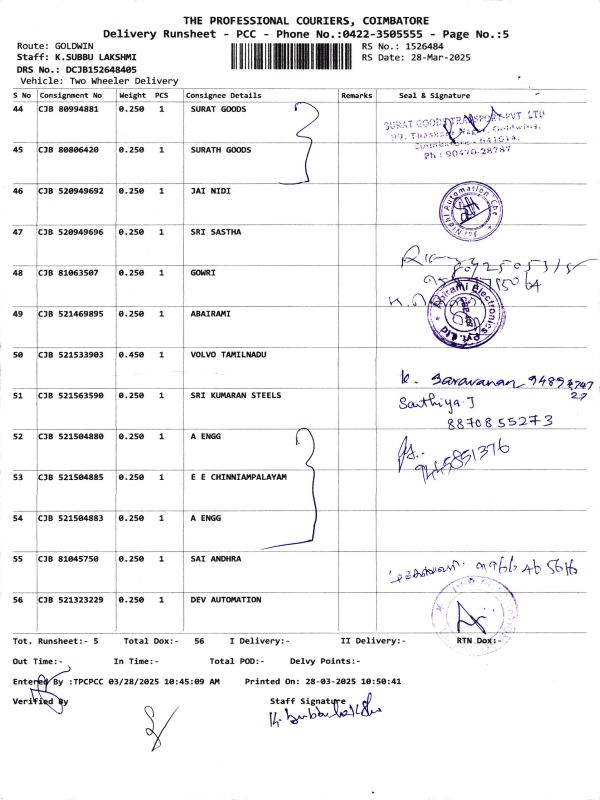 THE PROFESSIONAL COURIERS, COIMBATORE
Delivery Runsheet - PCC - Phone No.:0422-3505555 - Page No.:5
Route: GOLDWIN RS No.: 1526484
Staff: K.SUBBU LAKSHMI RS Date: 28-Mar-2025
DRS No.: DCJB152648405
Vehicle: Two Wheeler Delivery
S No Consignment No Weight PCS Consignee Details Remarks Seal & Signature
44 CJB 80994881 0.250 1 SURAT GOODS
SURAT GOODS TRANSPORT PVT. LTD
99, Thaskar Nagar, Goldwins,
Coimbatore - 641014.
Ph : 90470-28787
45 CJB 80806420 0.250 1 SURATH GOODS
46 CJB 520949692 0.250 1 JAI NIDI
Jai Nidhi Automation Cbe
47 CJB 520949696 0.250 1 SRI SASTHA
48 CJB 81063507 0.250 1 GOWRI
49 CJB 521469895 0.250 1 ABAIRAMI
Abirami Electronics Pvt. Ltd
50 CJB 521533903 0.450 1 VOLVO TAMILNADU
K. Saravanan 94893747
27
51 CJB 521563590 0.250 1 SRI KUMARAN STEELS
Sathiya.J
8870855273
52 CJB 521504880 0.250 1 A ENGG
9445851376
53 CJB 521504885 0.250 1 E E CHINNIAMPALAYAM
54 CJB 521504883 0.250 1 A ENGG
55 CJB 81045750 0.250 1 SAI ANDHRA
56 CJB 521323229 0.250 1 DEV AUTOMATION
Tot. Runsheet:- 5 Total Dox:- 56 I Delivery:- II Delivery:- RTN Dox:-
Out Time:- In Time:- Total POD:- Delvy Points:-
Entered By :TPCPCC 03/28/2025 10:45:09 AM Printed On: 28-03-2025 10:50:41
Verified By Staff Signature
K. Subbulakshmi